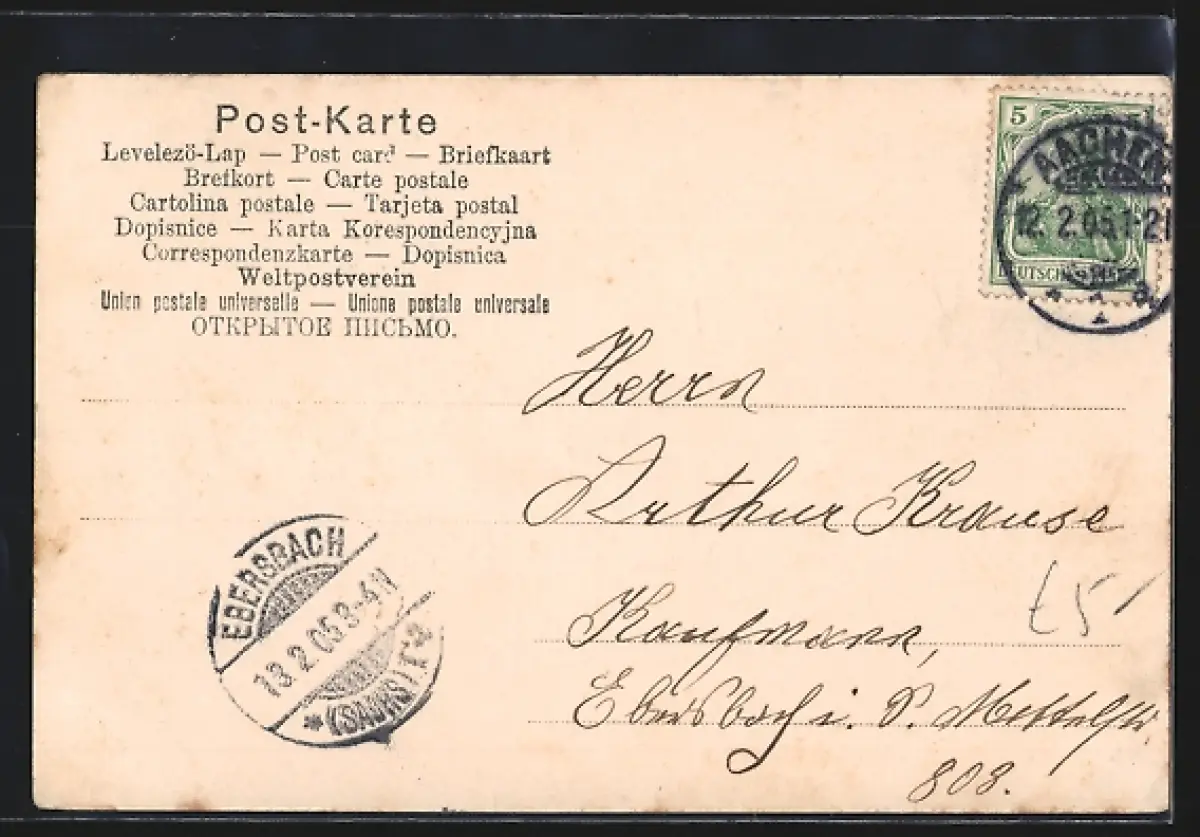 Post-Karte
Levelezö-Lap — Post card — Briefkaart
Brefkort — Carte postale
Cartolina postale — Tarjeta postal
Dopisnice — Karta Korespondencyjna
Correspondenzkarte — Dopisnica
Weltpostverein
Union postale universelle — Unione postale universale
ОТКРЫТОЕ ПИСЬМО.
5
AACHEN
12.2.05.1-2
DEUTSCHES
Herrn
Arthur Krause
Kaufmann,
Ebersbach i. S. Mittelstr.
808.
EBERSBACH
13.2.05.3-4N
* (SACHS)